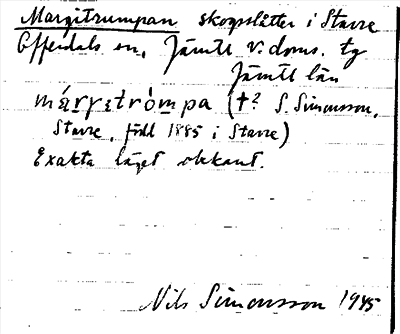 Margitrumpan skogsslåtter i Stavre
Offerdals sn, Jämtl v. doms. tg
Jämtl län
márgɩtròmpa (†? S. Simonsson,
Stavre, född 1885 i Stavre)
Exakta läget okänt.
Nils Simonsson 1945